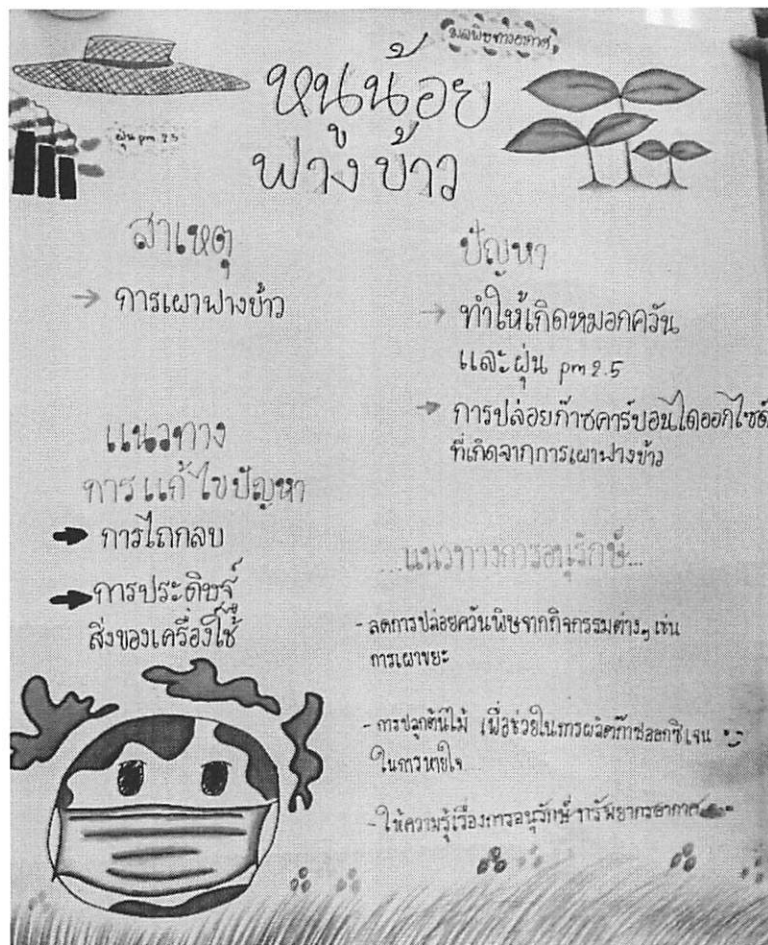 มลพิษทางอากาศ
หนูน้อย
ฟางข้าว
ฝุ่น pm 2.5
สาเหตุ
→ การเผาฟางข้าว
ปัญหา
→ ทำให้เกิดหมอกควัน
และฝุ่น pm 2.5
→ การปล่อยก๊าซคาร์บอนไดออกไซด์
ที่เกิดจากการเผาฟางข้าว
แนวทาง
การแก้ไขปัญหา
→ การไถกลบ
→ การประดิษฐ์
สิ่งของเครื่องใช้
...แนวทางการอนุรักษ์...
- ลดการปล่อยควันพิษจากกิจกรรมต่างๆ เช่น
การเผาขยะ
- การปลูกต้นไม้ เพื่อช่วยในการผลิตก๊าซออกซิเจน
ในการหายใจ
- ให้ความรู้เรื่องการอนุรักษ์ทรัพยากรอากาศ